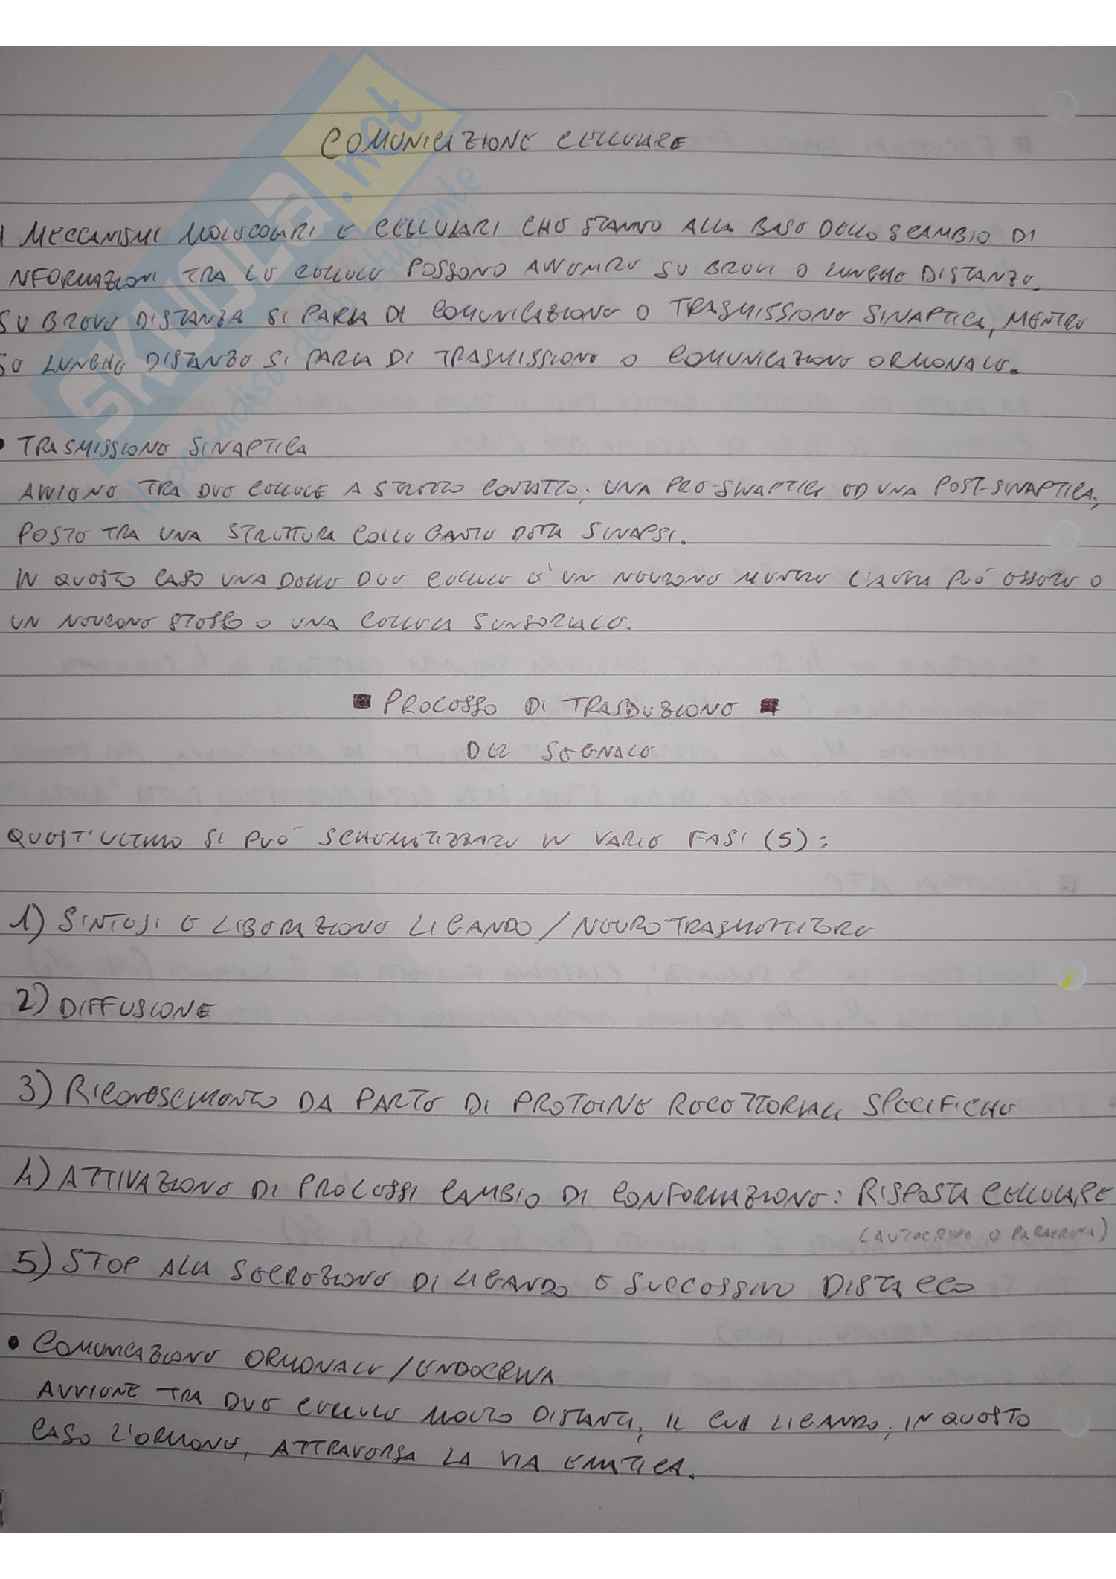 COMUNICAZIONE CELLULARE
I MECCANISMI MOLECOLARI E CELLULARI CHE STANNO ALLA BASE DELLO SCAMBIO DI
NFORMAZIONI TRA LE CELLULE POSSONO AVVENIRE SU BREVI O LUNGHE DISTANZE.
SU BREVE DISTANZA SI PARLA DI COMUNICAZIONE O TRASMISSIONE SINAPTICA, MENTRE
SU LUNGHE DISTANZE SI PARLA DI TRASMISSIONE O COMUNICAZIONE ORMONALE.
• TRASMISSIONE SINAPTICA
AVVIENE TRA DUE CELLULE A STRETTO CONTATTO: UNA PRE-SINAPTICA ED UNA POST-SINAPTICA,
POSTE TRA UNA STRUTTURA COLLEGANTE DETTA SINAPSI.
IN QUESTO CASO UNA DELLE DUE CELLULE È UN NEURONE MENTRE L'ALTRA PUÒ ESSERE O
UN NEURONE STESSO O UNA CELLULA SENSORIALE.
■ PROCESSO DI TRASDUZIONE ■
DEL SEGNALE
QUEST'ULTIMO SI PUÒ SCHEMATIZZARE IN VARIE FASI (5):
1) SINTESI E LIBERAZIONE LIGANDO / NEUROTRASMETTITORE
2) DIFFUSIONE
3) RICONOSCIMENTO DA PARTE DI PROTEINE RECETTORIALI SPECIFICHE
4) ATTIVAZIONE DI PROCESSI CAMBIO DI CONFORMAZIONE: RISPOSTA CELLULARE
(AUTOCRINA O PARACRINA)
5) STOP ALLA SECREZIONE DI LIGANDO E SUCCESSIVO DISTACCO
• COMUNICAZIONE ORMONALE / ENDOCRINA
AVVIENE TRA DUE CELLULE MOLTO DISTANTI, IL CUI LIGANDO, IN QUESTO
CASO L'ORMONE, ATTRAVERSA LA VIA EMATICA.
SKUOLA.net